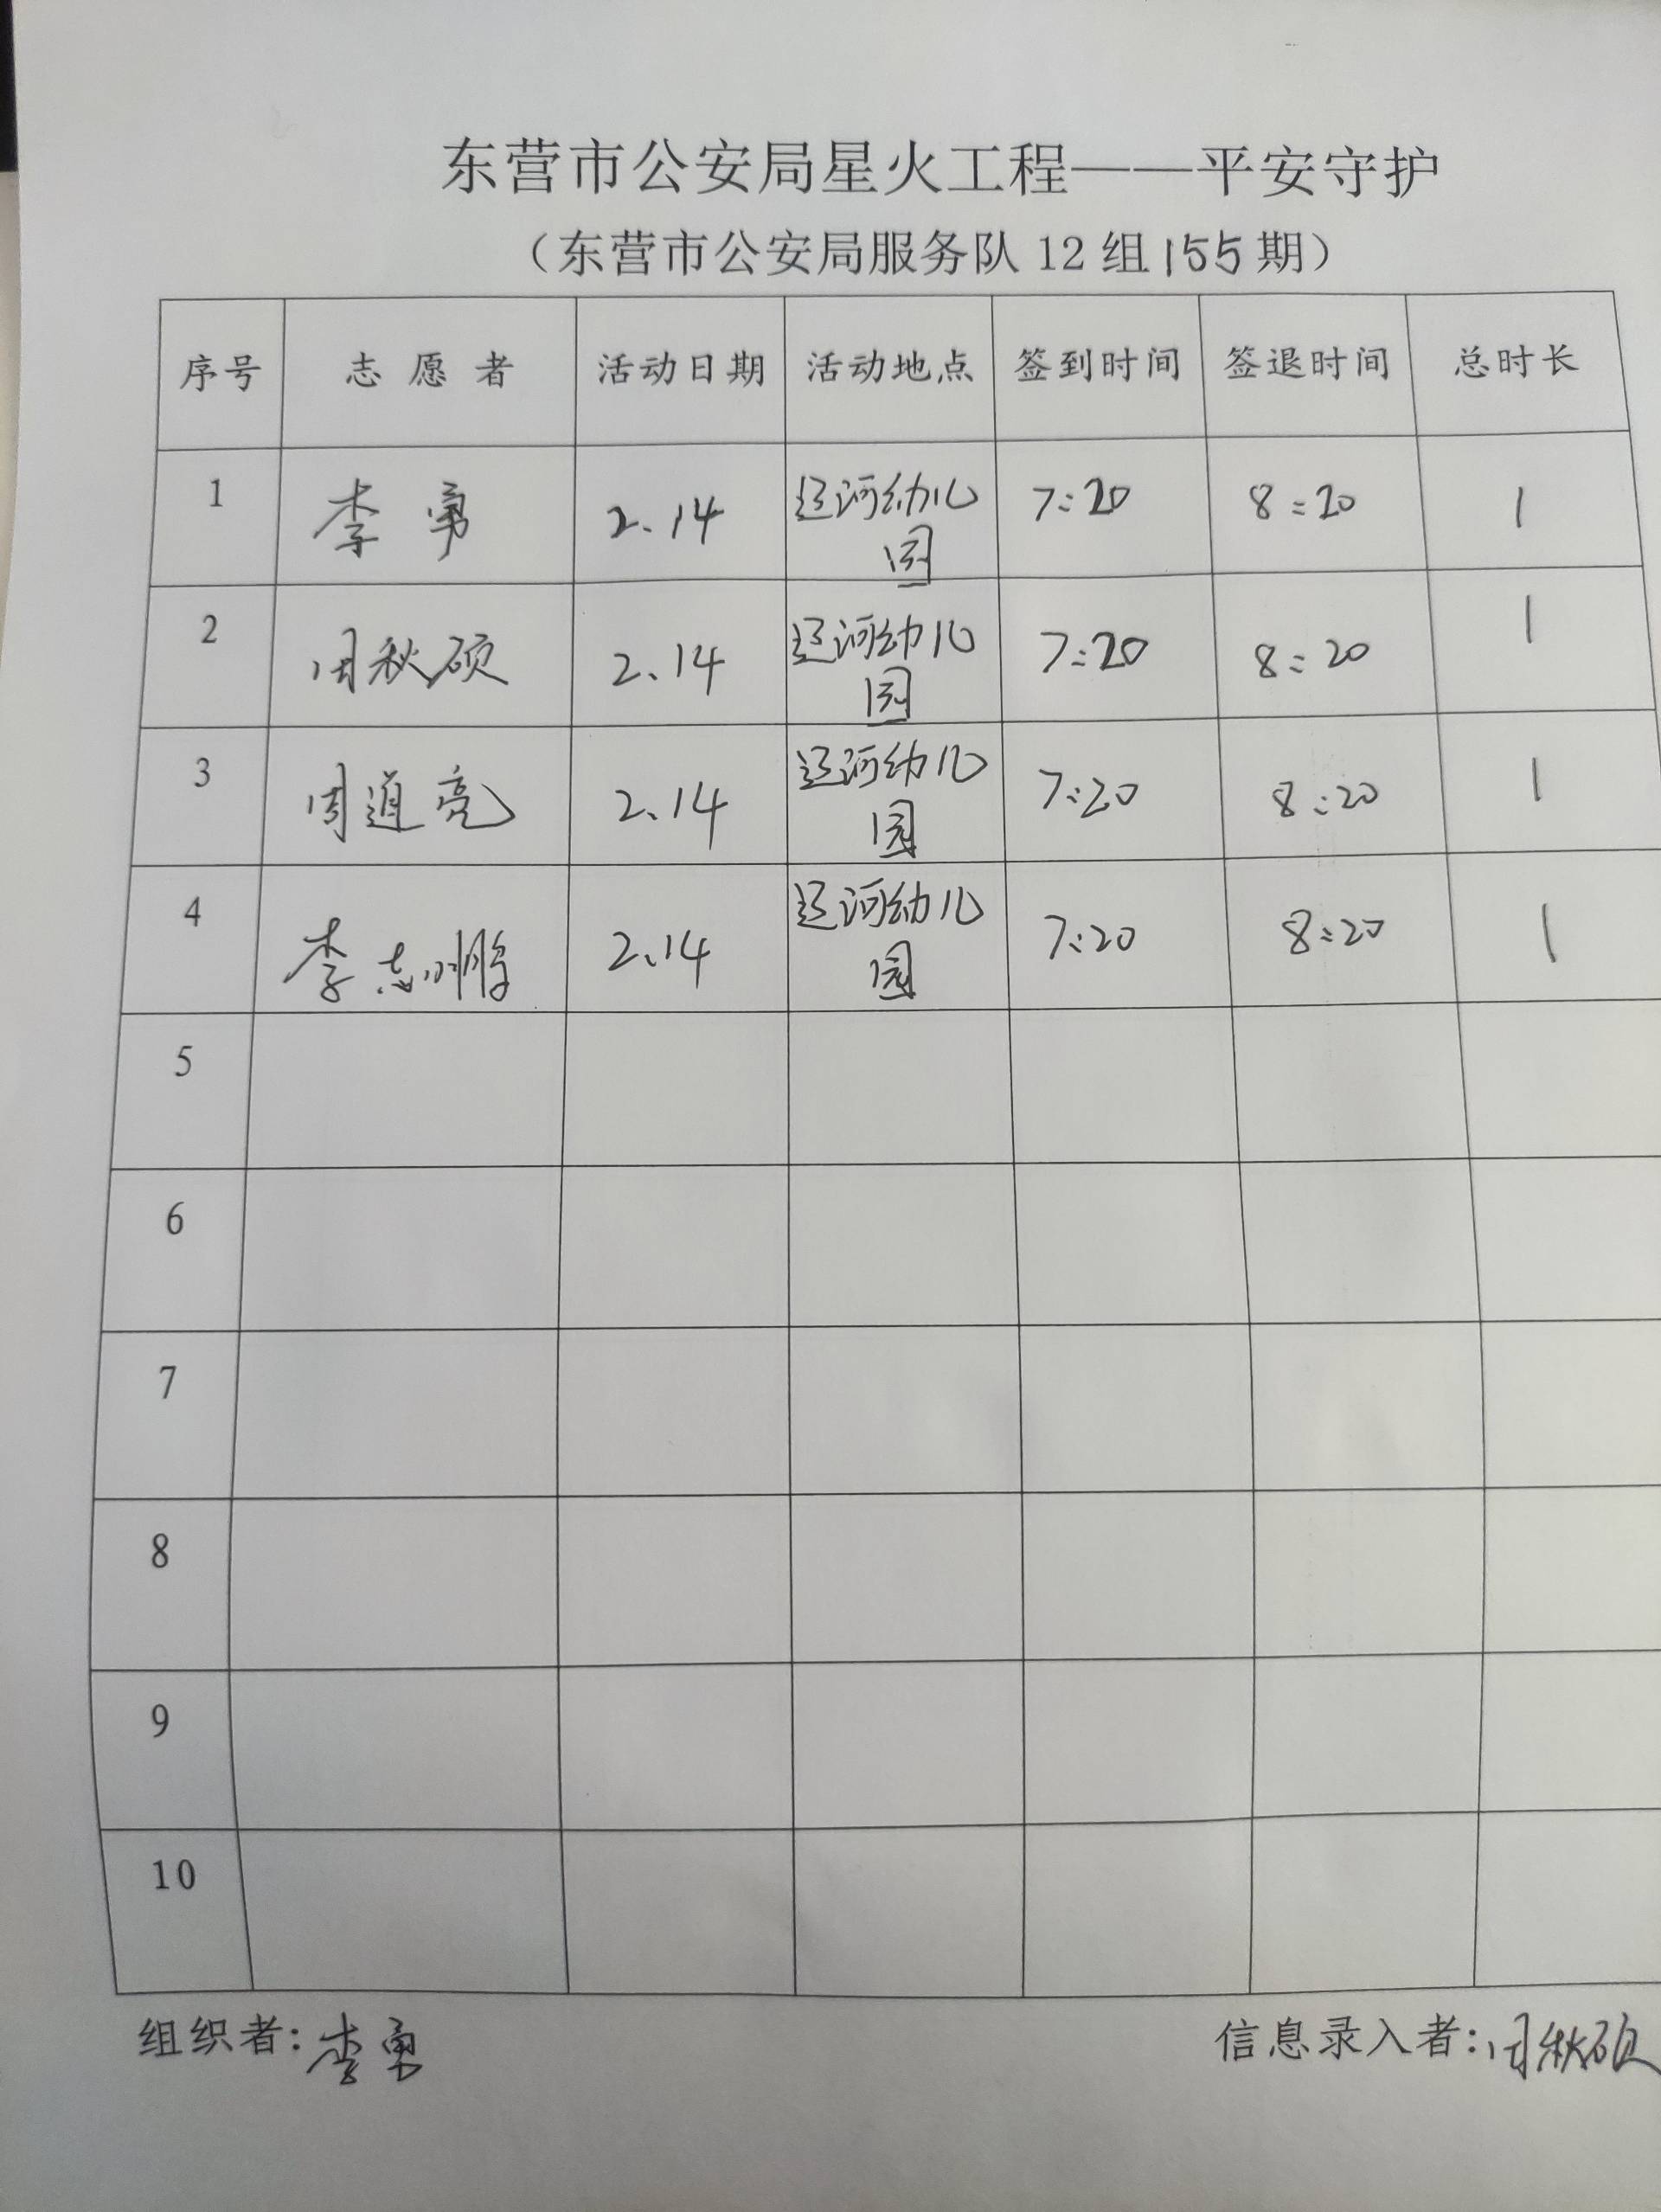 东营市公安局星火工程——平安守护
（东营市公安局服务队12组155期）
序号 志愿者 活动日期 活动地点 签到时间 签退时间 总时长
1 李勇 2.14 辽河幼儿园 7:20 8:20 1
2 周秋硕 2.14 辽河幼儿园 7:20 8:20 1
3 周道亮 2.14 辽河幼儿园 7:20 8:20 1
4 李志鹏 2.14 辽河幼儿园 7:20 8:20 1
5
6
7
8
9
10
组织者：李勇 信息录入者：周秋硕